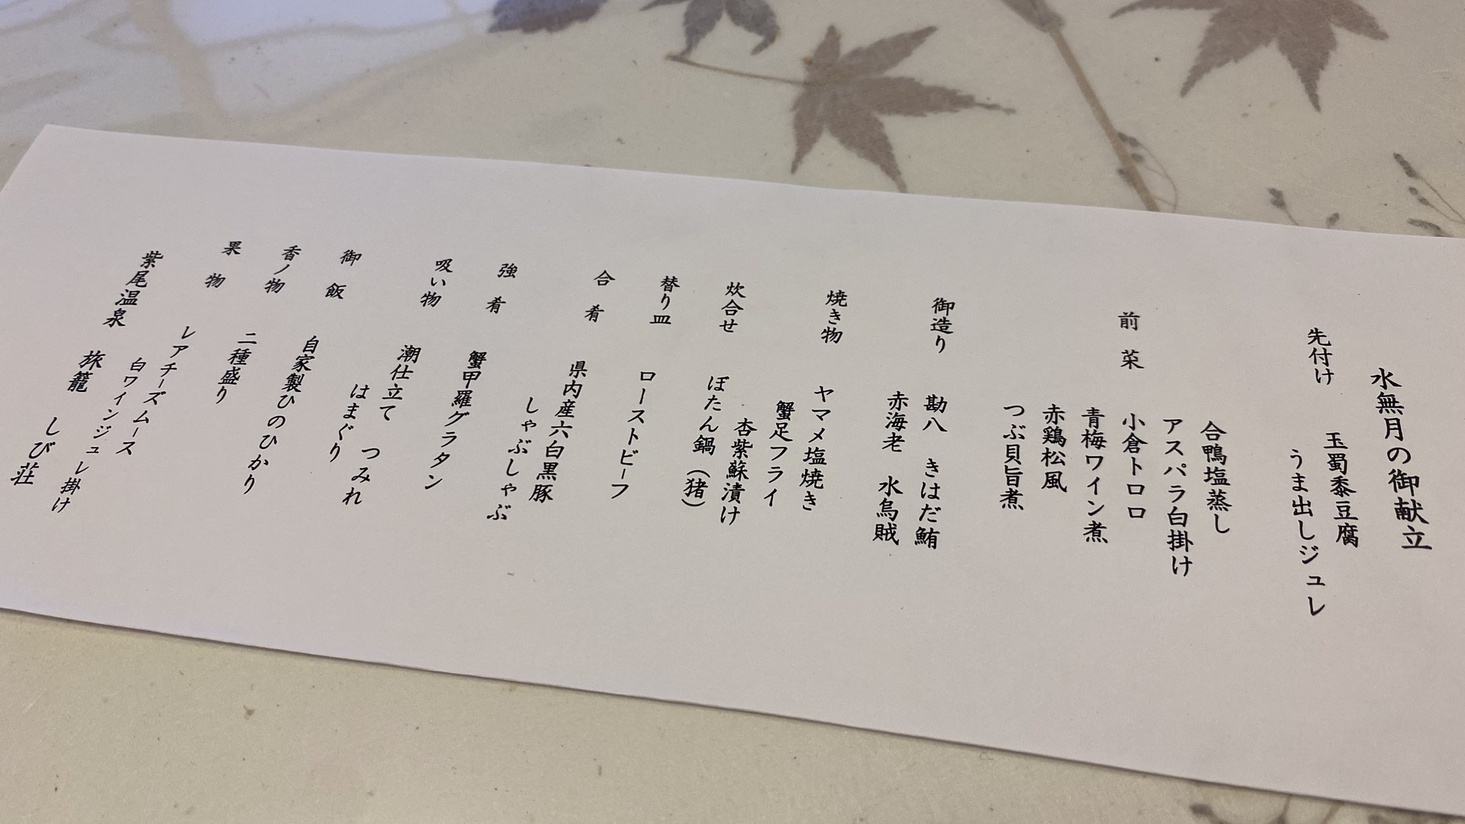 水無月の御献立
先付け 玉蜀黍豆腐
うま出しジュレ
前菜 合鴨塩蒸し
アスパラ白掛け
小倉トロロ
青梅ワイン煮
赤鶏松風
つぶ貝旨煮
御造り 勘八 きはだ鮪
赤海老 水烏賊
焼き物 ヤマメ塩焼き
蟹足フライ
杏紫蘇漬け
炊合せ ぼたん鍋(猪)
替り皿 ローストビーフ
合肴 県内産六白黒豚
しゃぶしゃぶ
強肴 蟹甲羅グラタン
吸い物 潮仕立て つみれ
はまぐり
御飯 自家製ひのひかり
香ノ物 二種盛り
果物 レアチーズムース
白ワインジュレ掛け
紫尾温泉 旅籠 しび荘